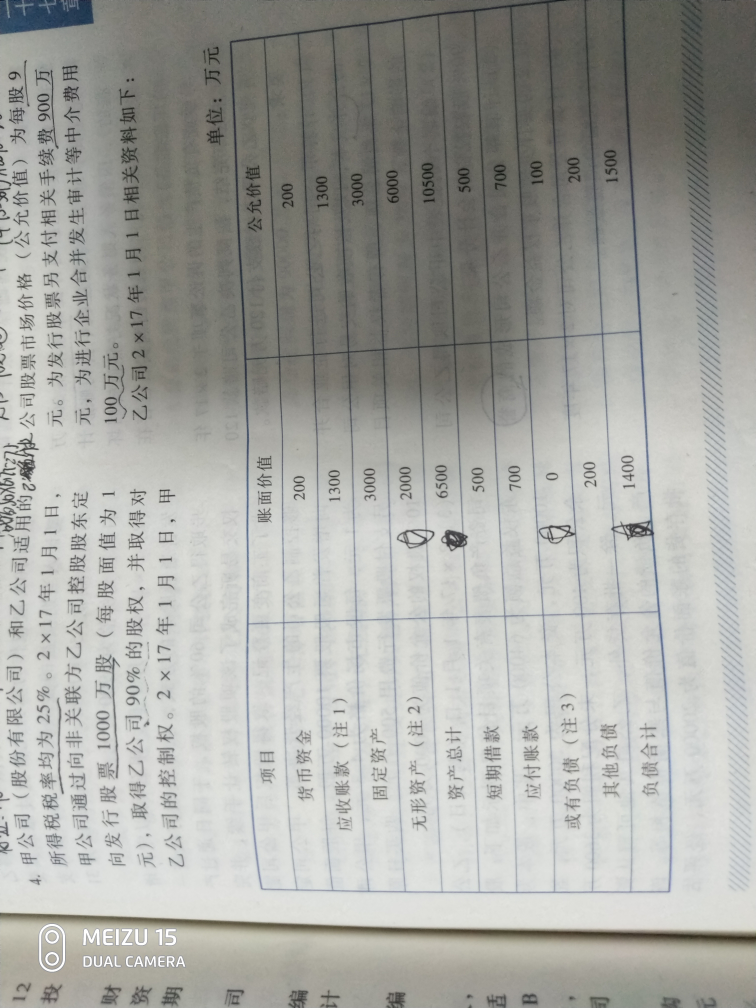 4. 甲公司（股份有限公司）和乙公司适用的
所得税税率均为25%。2×17年1月1日，
甲公司通过向非关联方乙公司控股股东定
向发行股票1000万股（每股面值为1
元），取得乙公司90%的股权，并取得对
乙公司的控制权。2×17年1月1日，甲
公司股票市场价格（公允价值）为每股9
元。为发行股票另支付相关手续费900万
元，为进行企业合并发生审计等中介费用
100万元。
乙公司2×17年1月1日相关资料如下：
单位：万元
项目 账面价值 公允价值
货币资金 200 200
应收账款（注1） 1300 1300
固定资产 3000 3000
无形资产（注2） 2000 6000
资产总计 6500 10500
短期借款 500 500
应付账款 700 700
或有负债（注3） 0 100
其他负债 200 200
负债合计 1400 1500
十
七
章
12
投
财
资
期
司
编
计
编
适
B
司
元
MEIZU 15
DUAL CAMERA